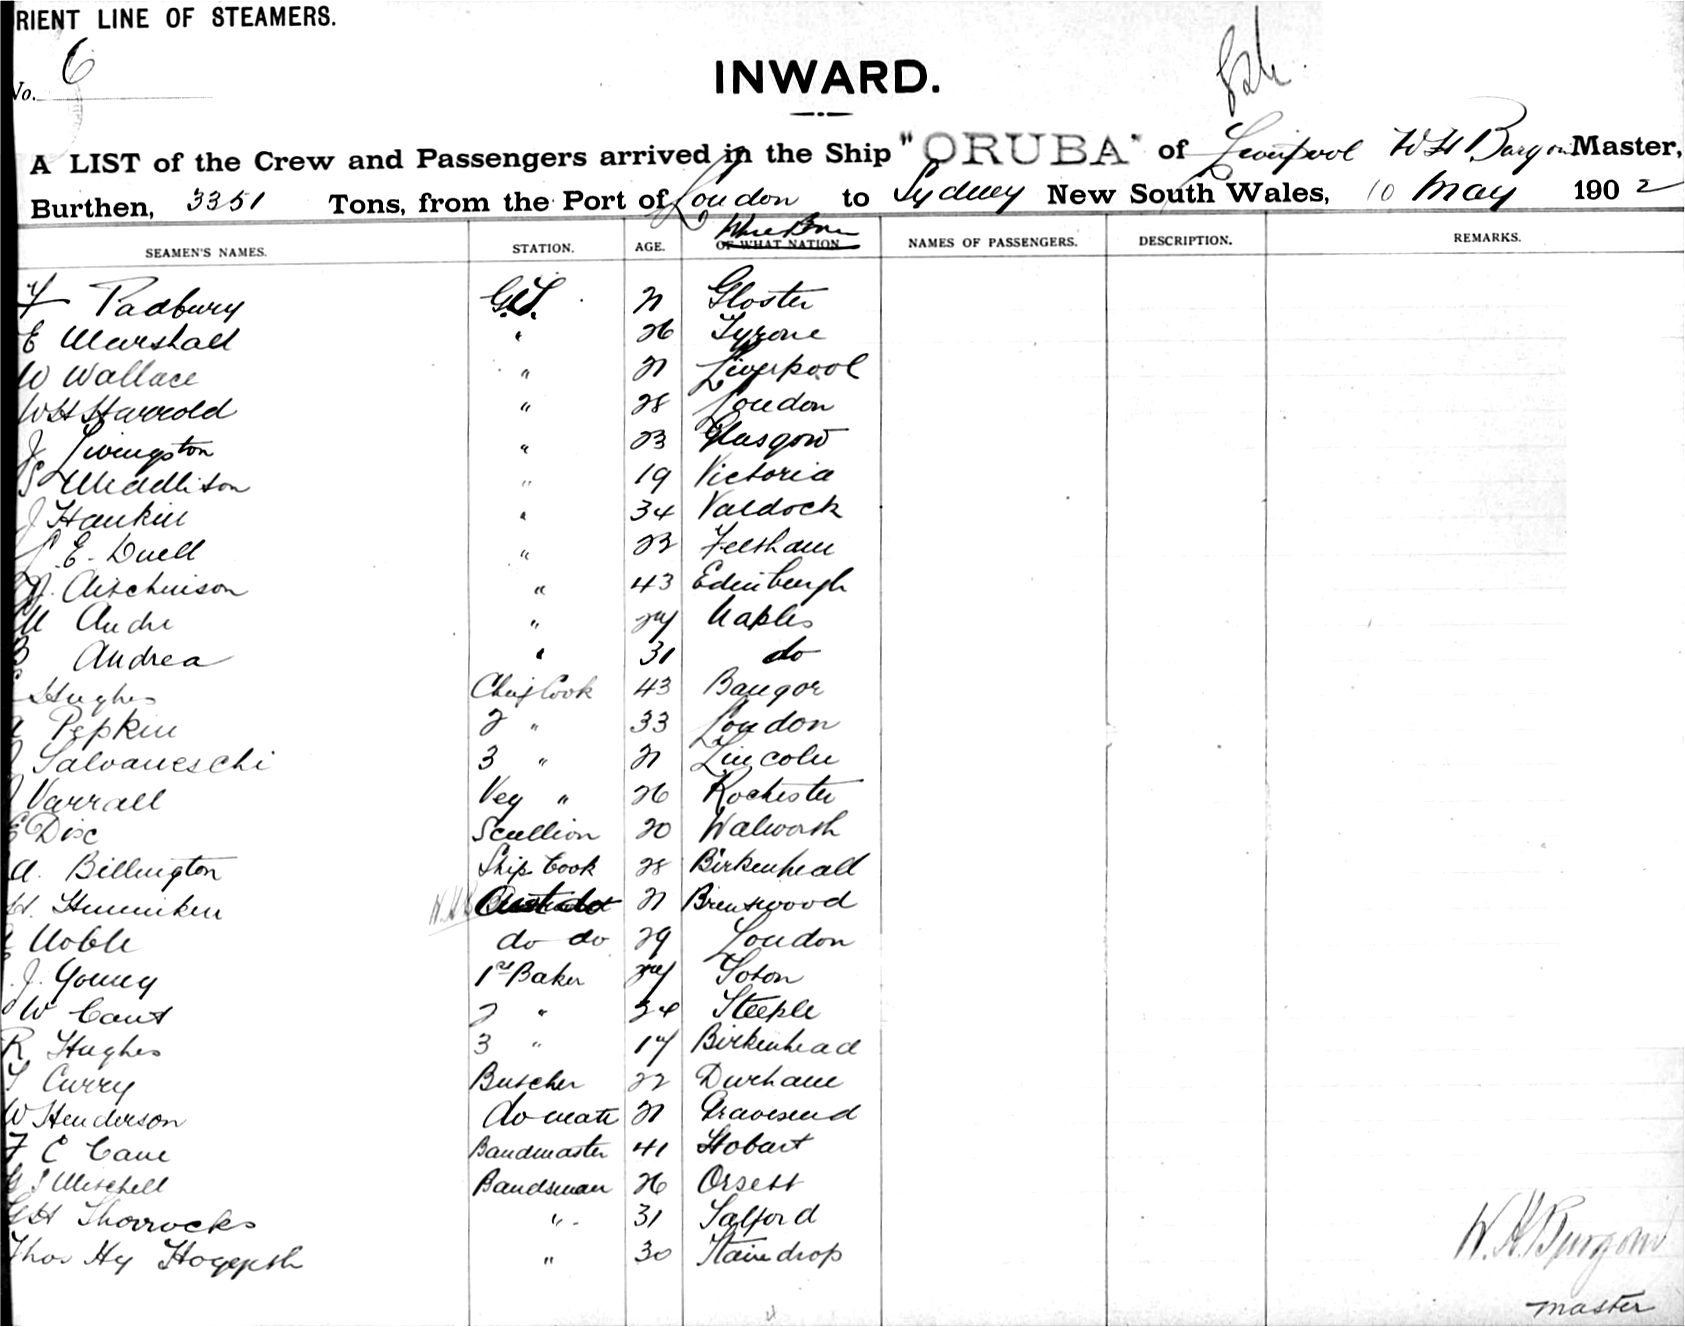 RIENT LINE OF STEAMERS.
No. 6
INWARD.
A LIST of the Crew and Passengers arrived in the Ship "ORUBA" of Liverpool W H Master,
Burthen, 3351 Tons, from the Port of London to Sydney New South Wales, 10 May 1902
SEAMEN'S NAMES. STATION. AGE. Where Born OF WHAT NATION NAMES OF PASSENGERS. DESCRIPTION. REMARKS.
F Padbury G.S. 21 Gloster
E Marshall " 26 Tyrone
W Wallace " 21 Liverpool
W H Harrold " 28 London
J Livingston " 23 Glasgow
S Middliton " 19 Victoria
J Hankin " 34 Valdock
E. Duell " 23 Feltham
Aitchinson " 43 Edinburgh
M Andre " 24 Naples
B Andrea " 31 do
Hughes Chief Cook 43 Bangor
A Pepkin 2 " 33 London
J Salvaneschi 3 " 21 Lincoln
J Varrall Veg " 26 Rochester
E Disc Scullion 20 Walworth
A. Billington Ship Cook 28 Birkenhead
H. Henniken 21 Brentwood
Noble do do 29 London
J. Young 1st Baker 24 Soton
W Cant 2 " 24 Steeple
R Hughes 3 " 17 Birkenhead
T Curry Butcher 22 Durham
W Henderson do mate 21 Gravesend
F C Cane Bandmaster 41 Hobart
G J Mitchell Bandsman 26 Orsett
G H Shorrocks " 31 Salford
Thos Hy " 30 Staindrop
W. H. Burgon
master